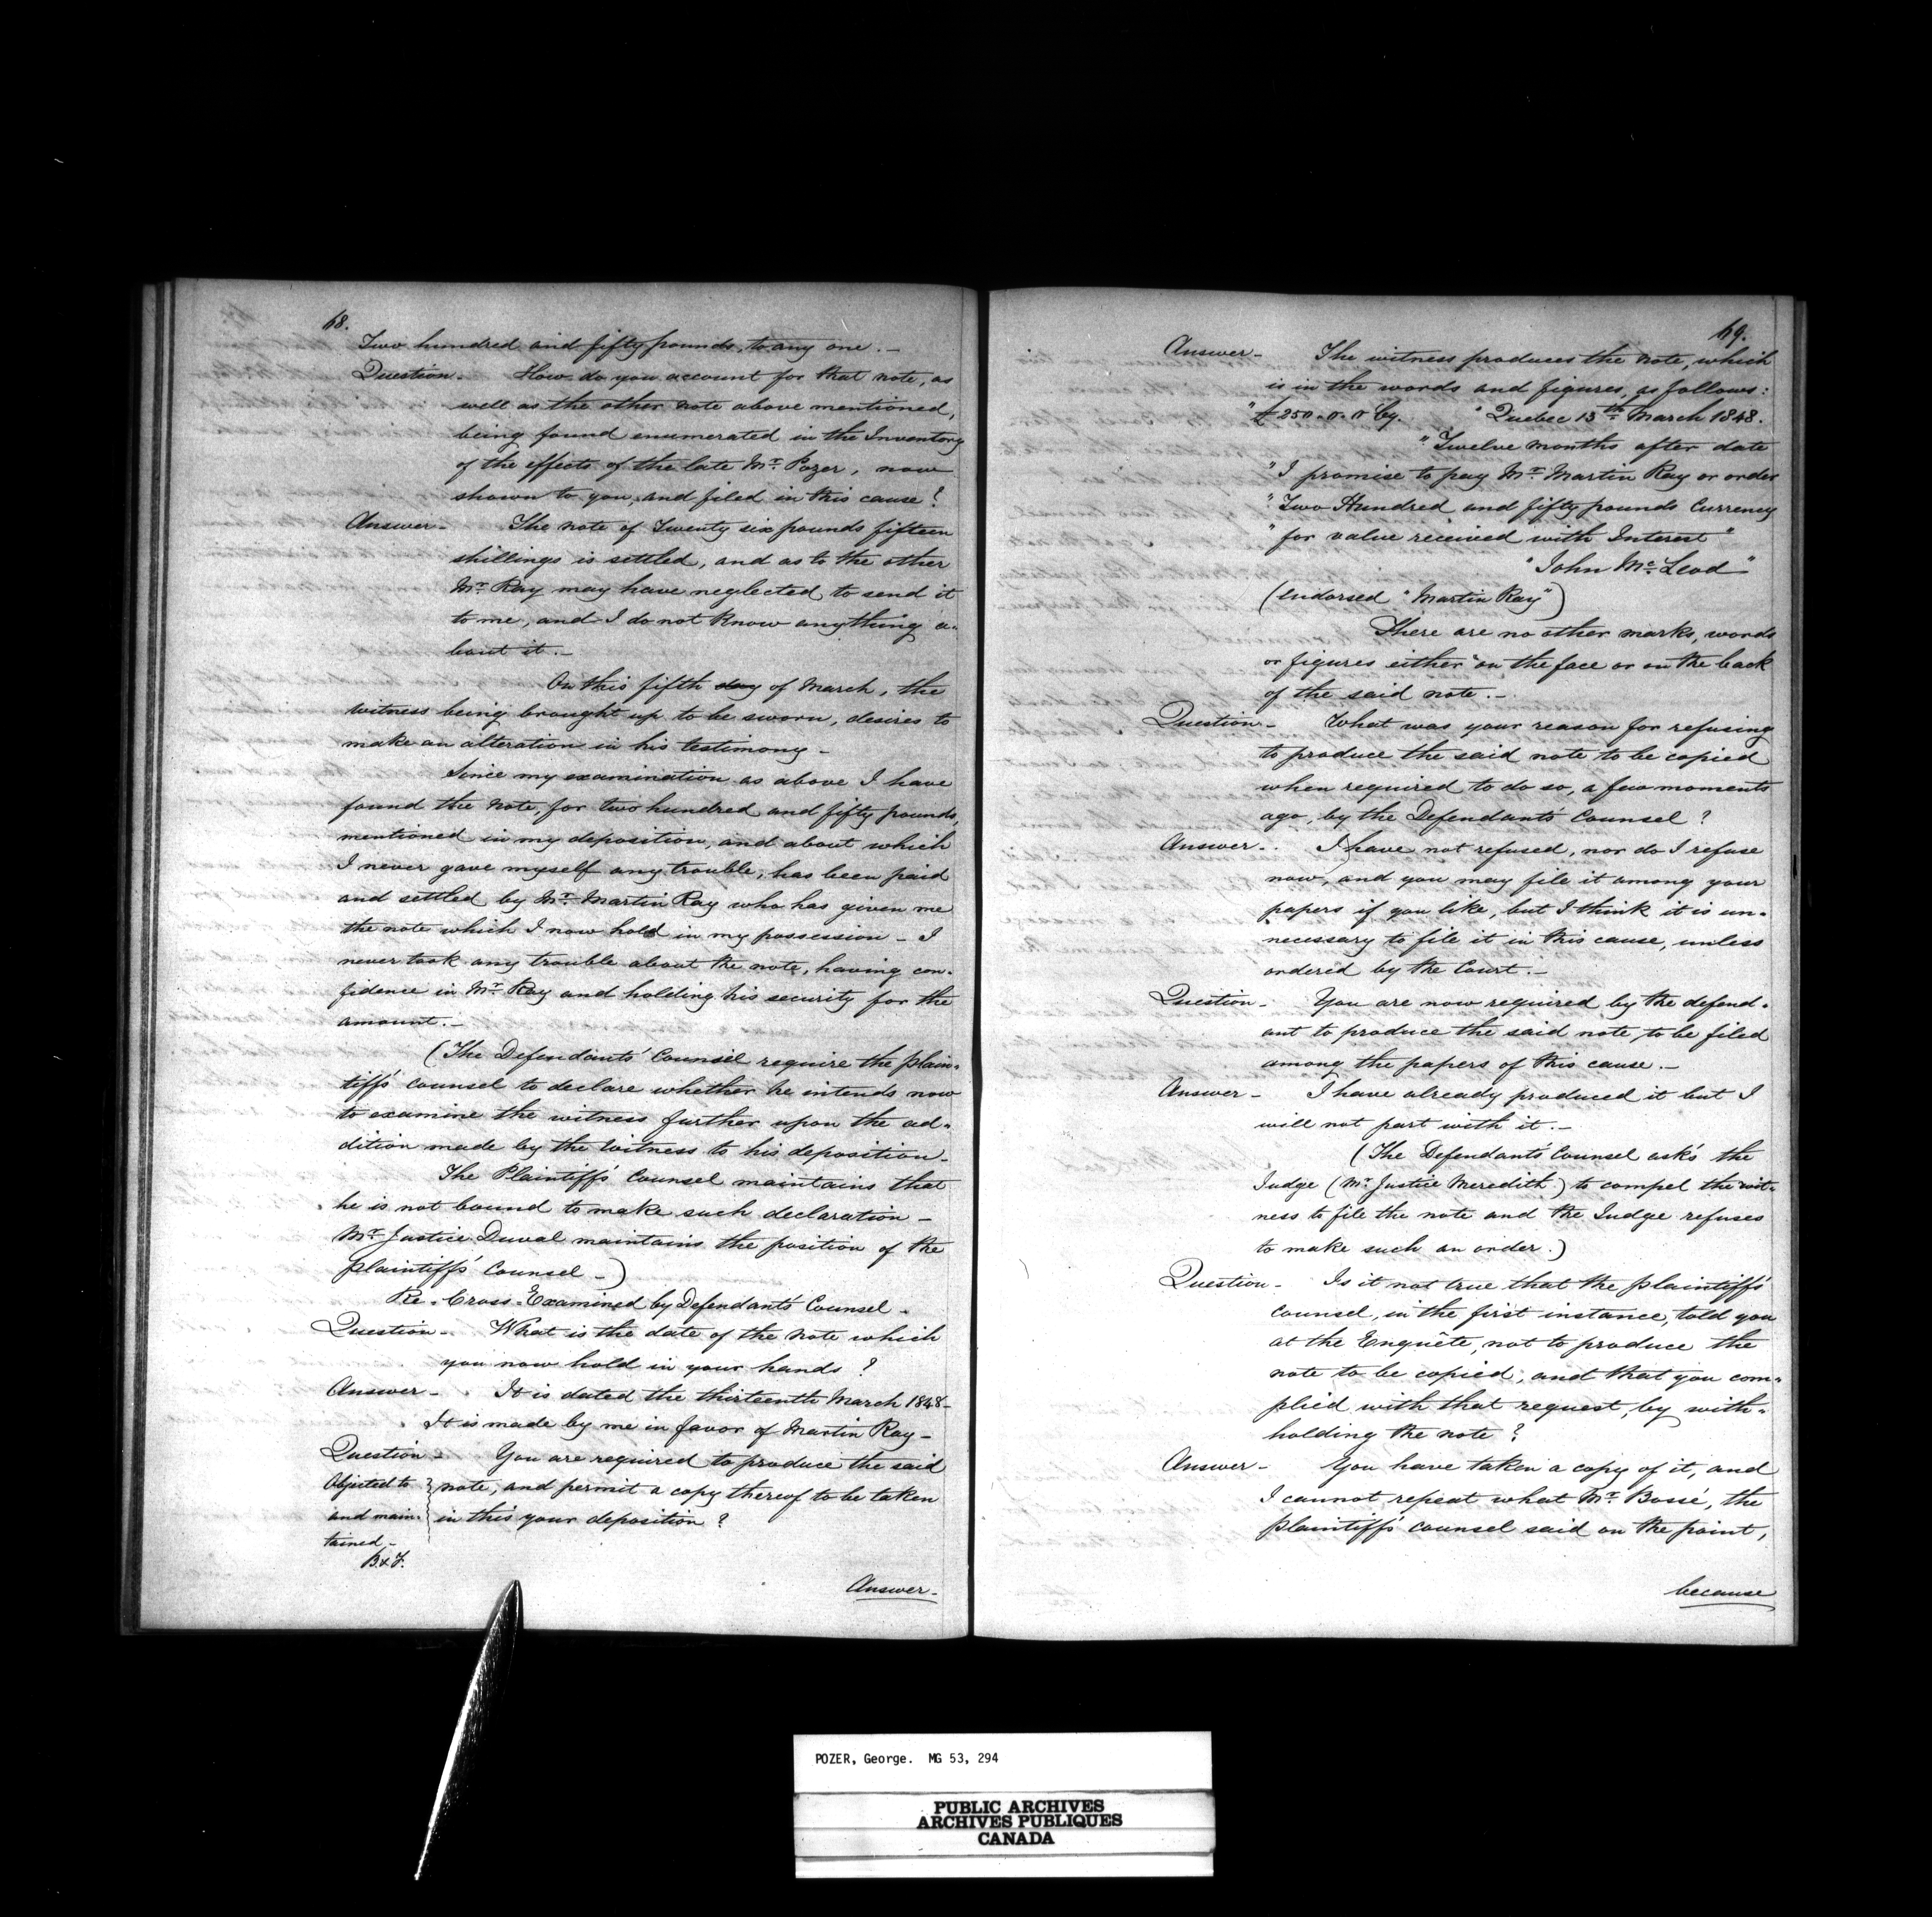 68.
Two hundred and fifty pounds, to any one. -
Question - How do you account for that note, as
well as the other note above mentioned,
being found enumerated in the Inventory
of the effects of the late Mr. Pozer, now
shown to you, and filed in this cause?
Answer - The note of Twenty six pounds fifteen
shillings is settled, and as to the other
Mr. Ray may have neglected to send it
to me, and I do not know anything a-
bout it. -
On this fifth day of March, the
witness being brought up to be sworn, desires to
make an alteration in his testimony -
Since my examination as above I have
found the note, for two hundred and fifty pounds,
mentioned in my deposition, and about which
I never gave myself any trouble, has been paid
and settled by Mr. Martin Ray who has given me
the note which I now hold in my possession - I
never took any trouble about the note, having con-
fidence in Mr. Ray and holding his security for the
amount. -
(The Defendants' Counsel require the plain-
tiff's counsel to declare whether he intends now
to examine the witness further upon the ad-
dition made by the witness to his deposition -
The Plaintiff's Counsel maintains that
he is not bound to make such declaration -
Mr. Justice Duval maintains the position of the
plaintiff's Counsel -)
Re-Cross-Examined by Defendant's Counsel -
Question - What is the date of the note which
you now hold in your hands?
Answer - It is dated the thirteenth March 1848 -
It is made by me in favor of Martin Ray -
Question - You are required to produce the said
Objected to note, and permit a copy thereof to be taken
and main- in this your deposition?
tained -
B & F.
Answer -
69.
Answer - The witness produces the note, which
is in the words and figures, as follows:
"£250.0.0 Cy. "Quebec 13th March 1848.
"Twelve months after date
"I promise to pay Mr. Martin Ray or order
"Two Hundred and fifty pounds Currency
"for value received with Interest"
"John McLeod"
(endorsed "Martin Ray")
There are no other marks, words
or figures either on the face or on the back
of the said note. -
Question - What was your reason for refusing
to produce the said note to be copied
when required to do so, a few moments
ago, by the Defendant's Counsel?
Answer - I have not refused, nor do I refuse
now, and you may file it among your
papers if you like, but I think it is un-
necessary to file it in this cause, unless
ordered by the Court. -
Question - You are now required by the defend-
ant to produce the said note, to be filed
among the papers of this cause. -
Answer - I have already produced it but I
will not part with it. -
(The Defendant's Counsel asks the
Judge (Mr. Justice Meredith) to compel the wit-
ness to file the note and the Judge refuses
to make such an order.)
Question - Is it not true that the plaintiff's
counsel, in the first instance, told you
at the Enquête, not to produce the
note to be copied, and that you com-
plied with that request, by with-
holding the note?
Answer - You have taken a copy of it, and
I cannot repeat what Mr. Bossé, the
plaintiff's counsel said on the point,
because
POZER, George. MG 53, 294
PUBLIC ARCHIVES
ARCHIVES PUBLIQUES
CANADA